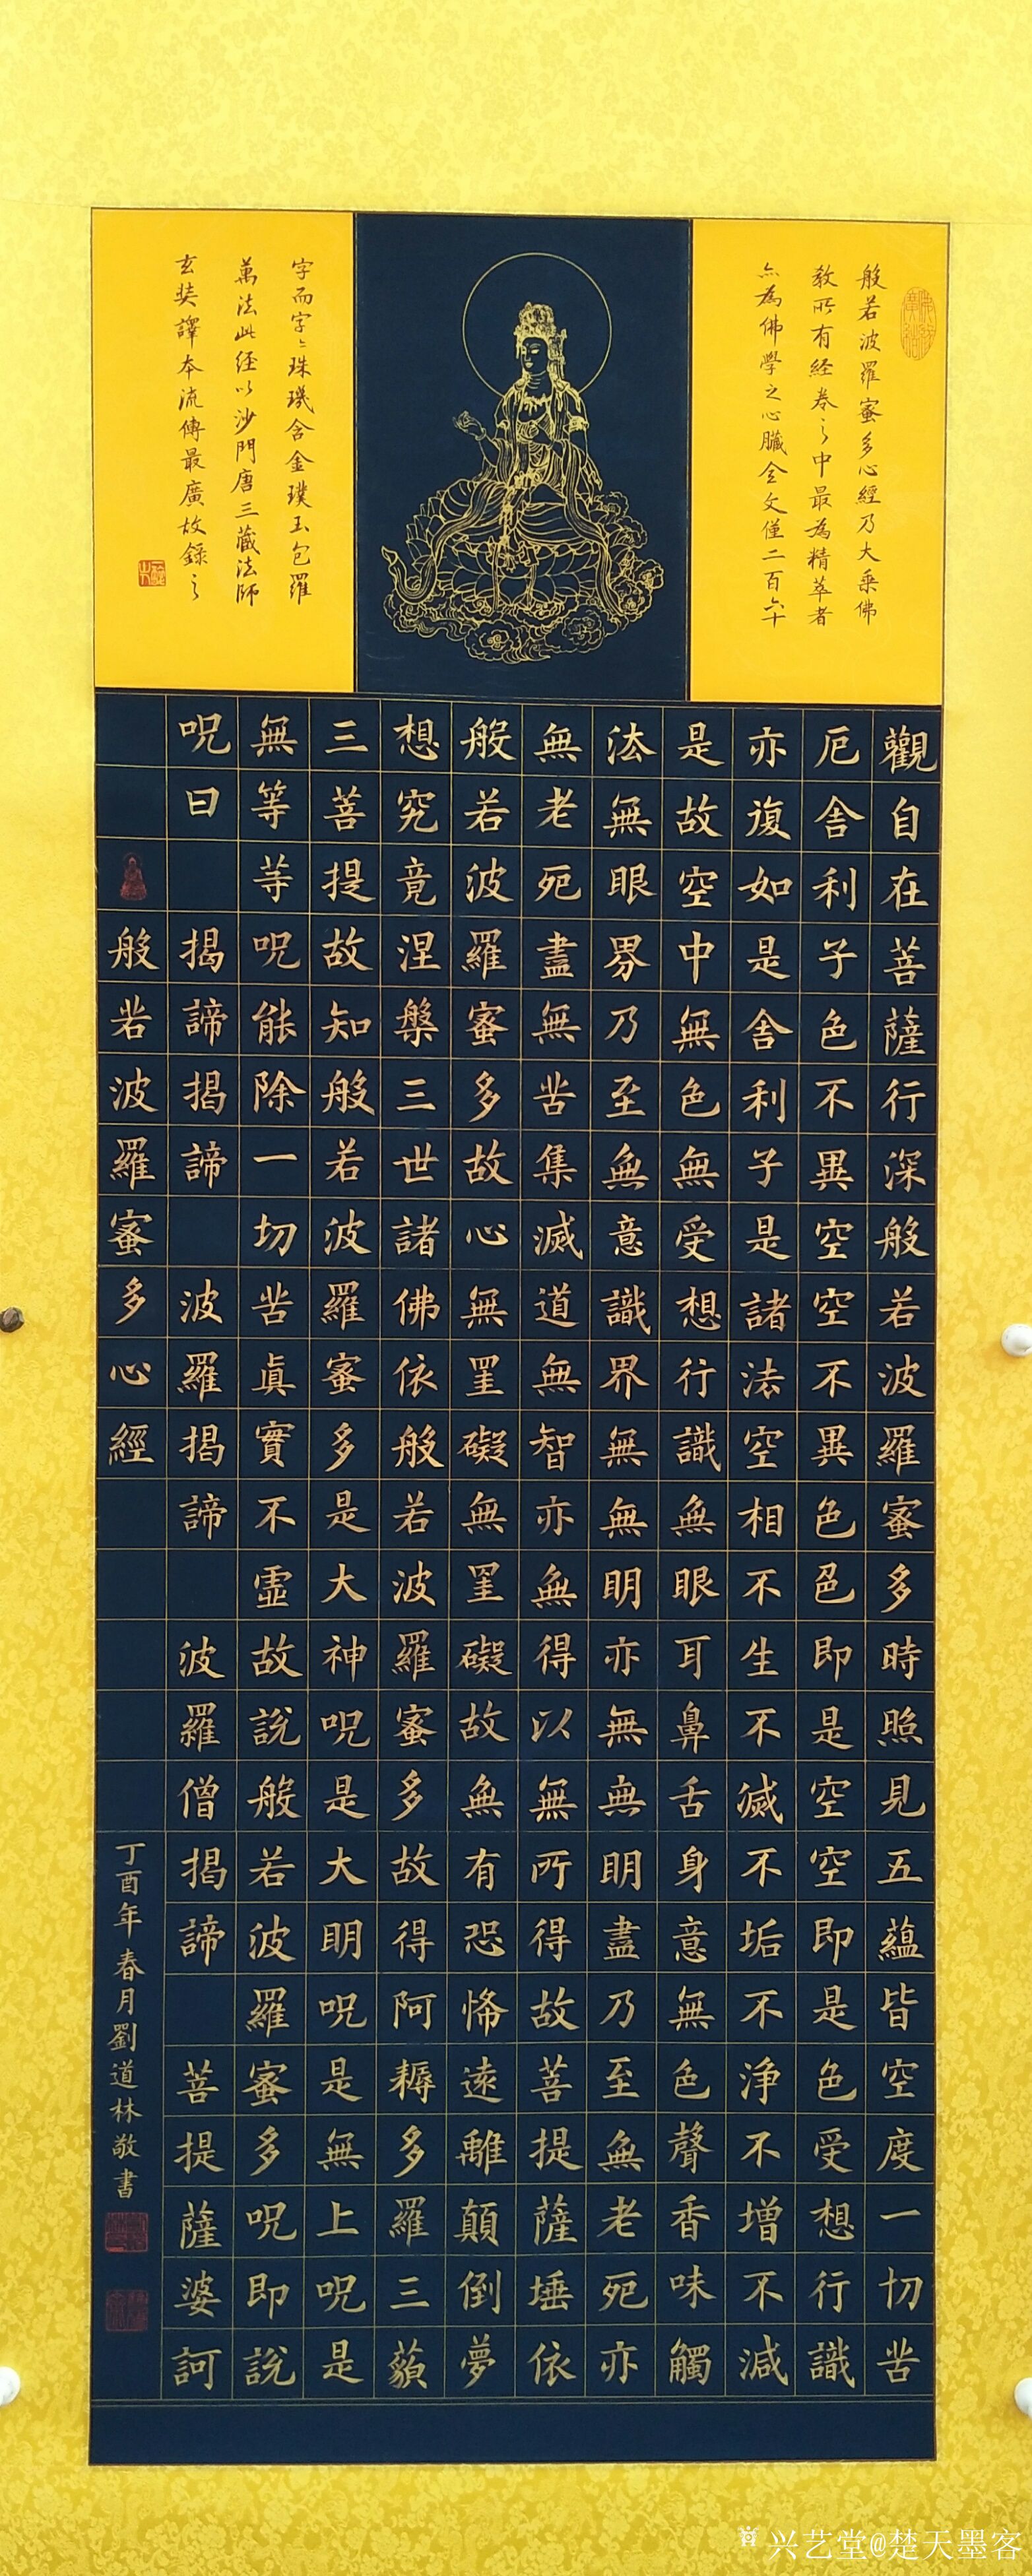 般若波羅蜜多心經乃大乘佛
教所有经卷之中最為精萃者
亦為佛學之心臟全文僅二百六十
字而字〻珠璣含金璞玉包羅
萬法此经以沙門唐三藏法師
玄奘譯本流傳最廣故錄之
觀自在菩薩行深般若波羅蜜多時照見五蘊皆空度一切苦
厄舍利子色不異空空不異色色即是空空即是色受想行識
亦復如是舍利子是諸法空相不生不滅不垢不淨不增不減
是故空中無色無受想行識無眼耳鼻舌身意無色聲香味觸
法無眼界乃至無意識界無無明亦無無明盡乃至無老死亦
無老死盡無苦集滅道無智亦無得以無所得故菩提薩埵依
般若波羅蜜多故心無罣礙無罣礙故無有恐怖遠離顛倒夢
想究竟涅槃三世諸佛依般若波羅蜜多故得阿耨多羅三藐
三菩提故知般若波羅蜜多是大神呪是大明呪是無上呪是
無等等呪能除一切苦真實不虛故說般若波羅蜜多呪即說
呪曰 揭諦揭諦 波羅揭諦 波羅僧揭諦 菩提薩婆訶
般若波羅蜜多心經
丁酉年春月劉道林敬書
兴艺堂@楚天墨客